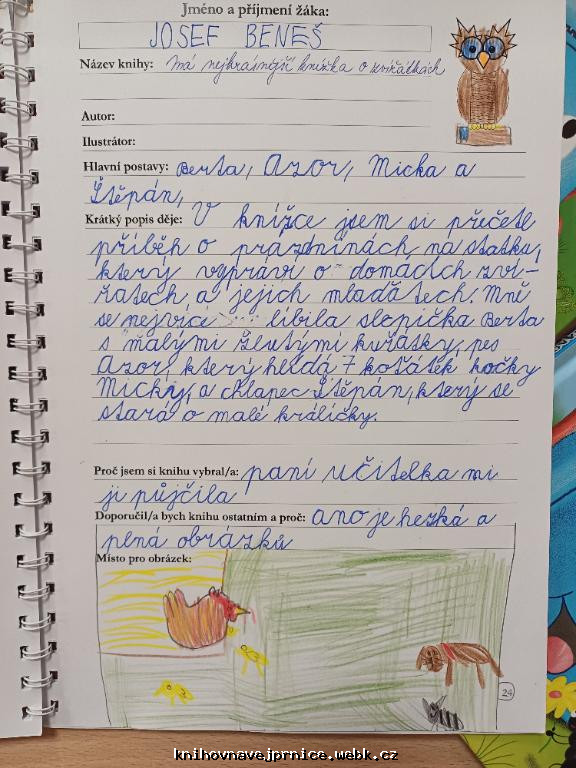 Jméno a příjmení žáka:
JOSEF BENEŠ
Název knihy: má nejkrásnější knížka o zvířátkách
Autor:
Ilustrátor:
Hlavní postavy: Berta, Azor, Micka a
Štěpán,
Krátký popis děje: V knížce jsem si přečetl
příběh o prázdninách na statku,
který vypráví o domácích zví-
řatech, a jejich mláďatech. Mně
se nejvíce líbila slepička Berta
s malými žlutými kuřátky, pes
Azor, který hlídá 7 koťátek kočky
Micky, a chlapec Štěpán, který se
stará o malé králíčky.
Proč jsem si knihu vybral/a: paní učitelka mi
ji půjčila
Doporučil/a bych knihu ostatním a proč: ano je hezká a
plná obrázků
Místo pro obrázek:
24
knihovnavejprnice.webk.cz